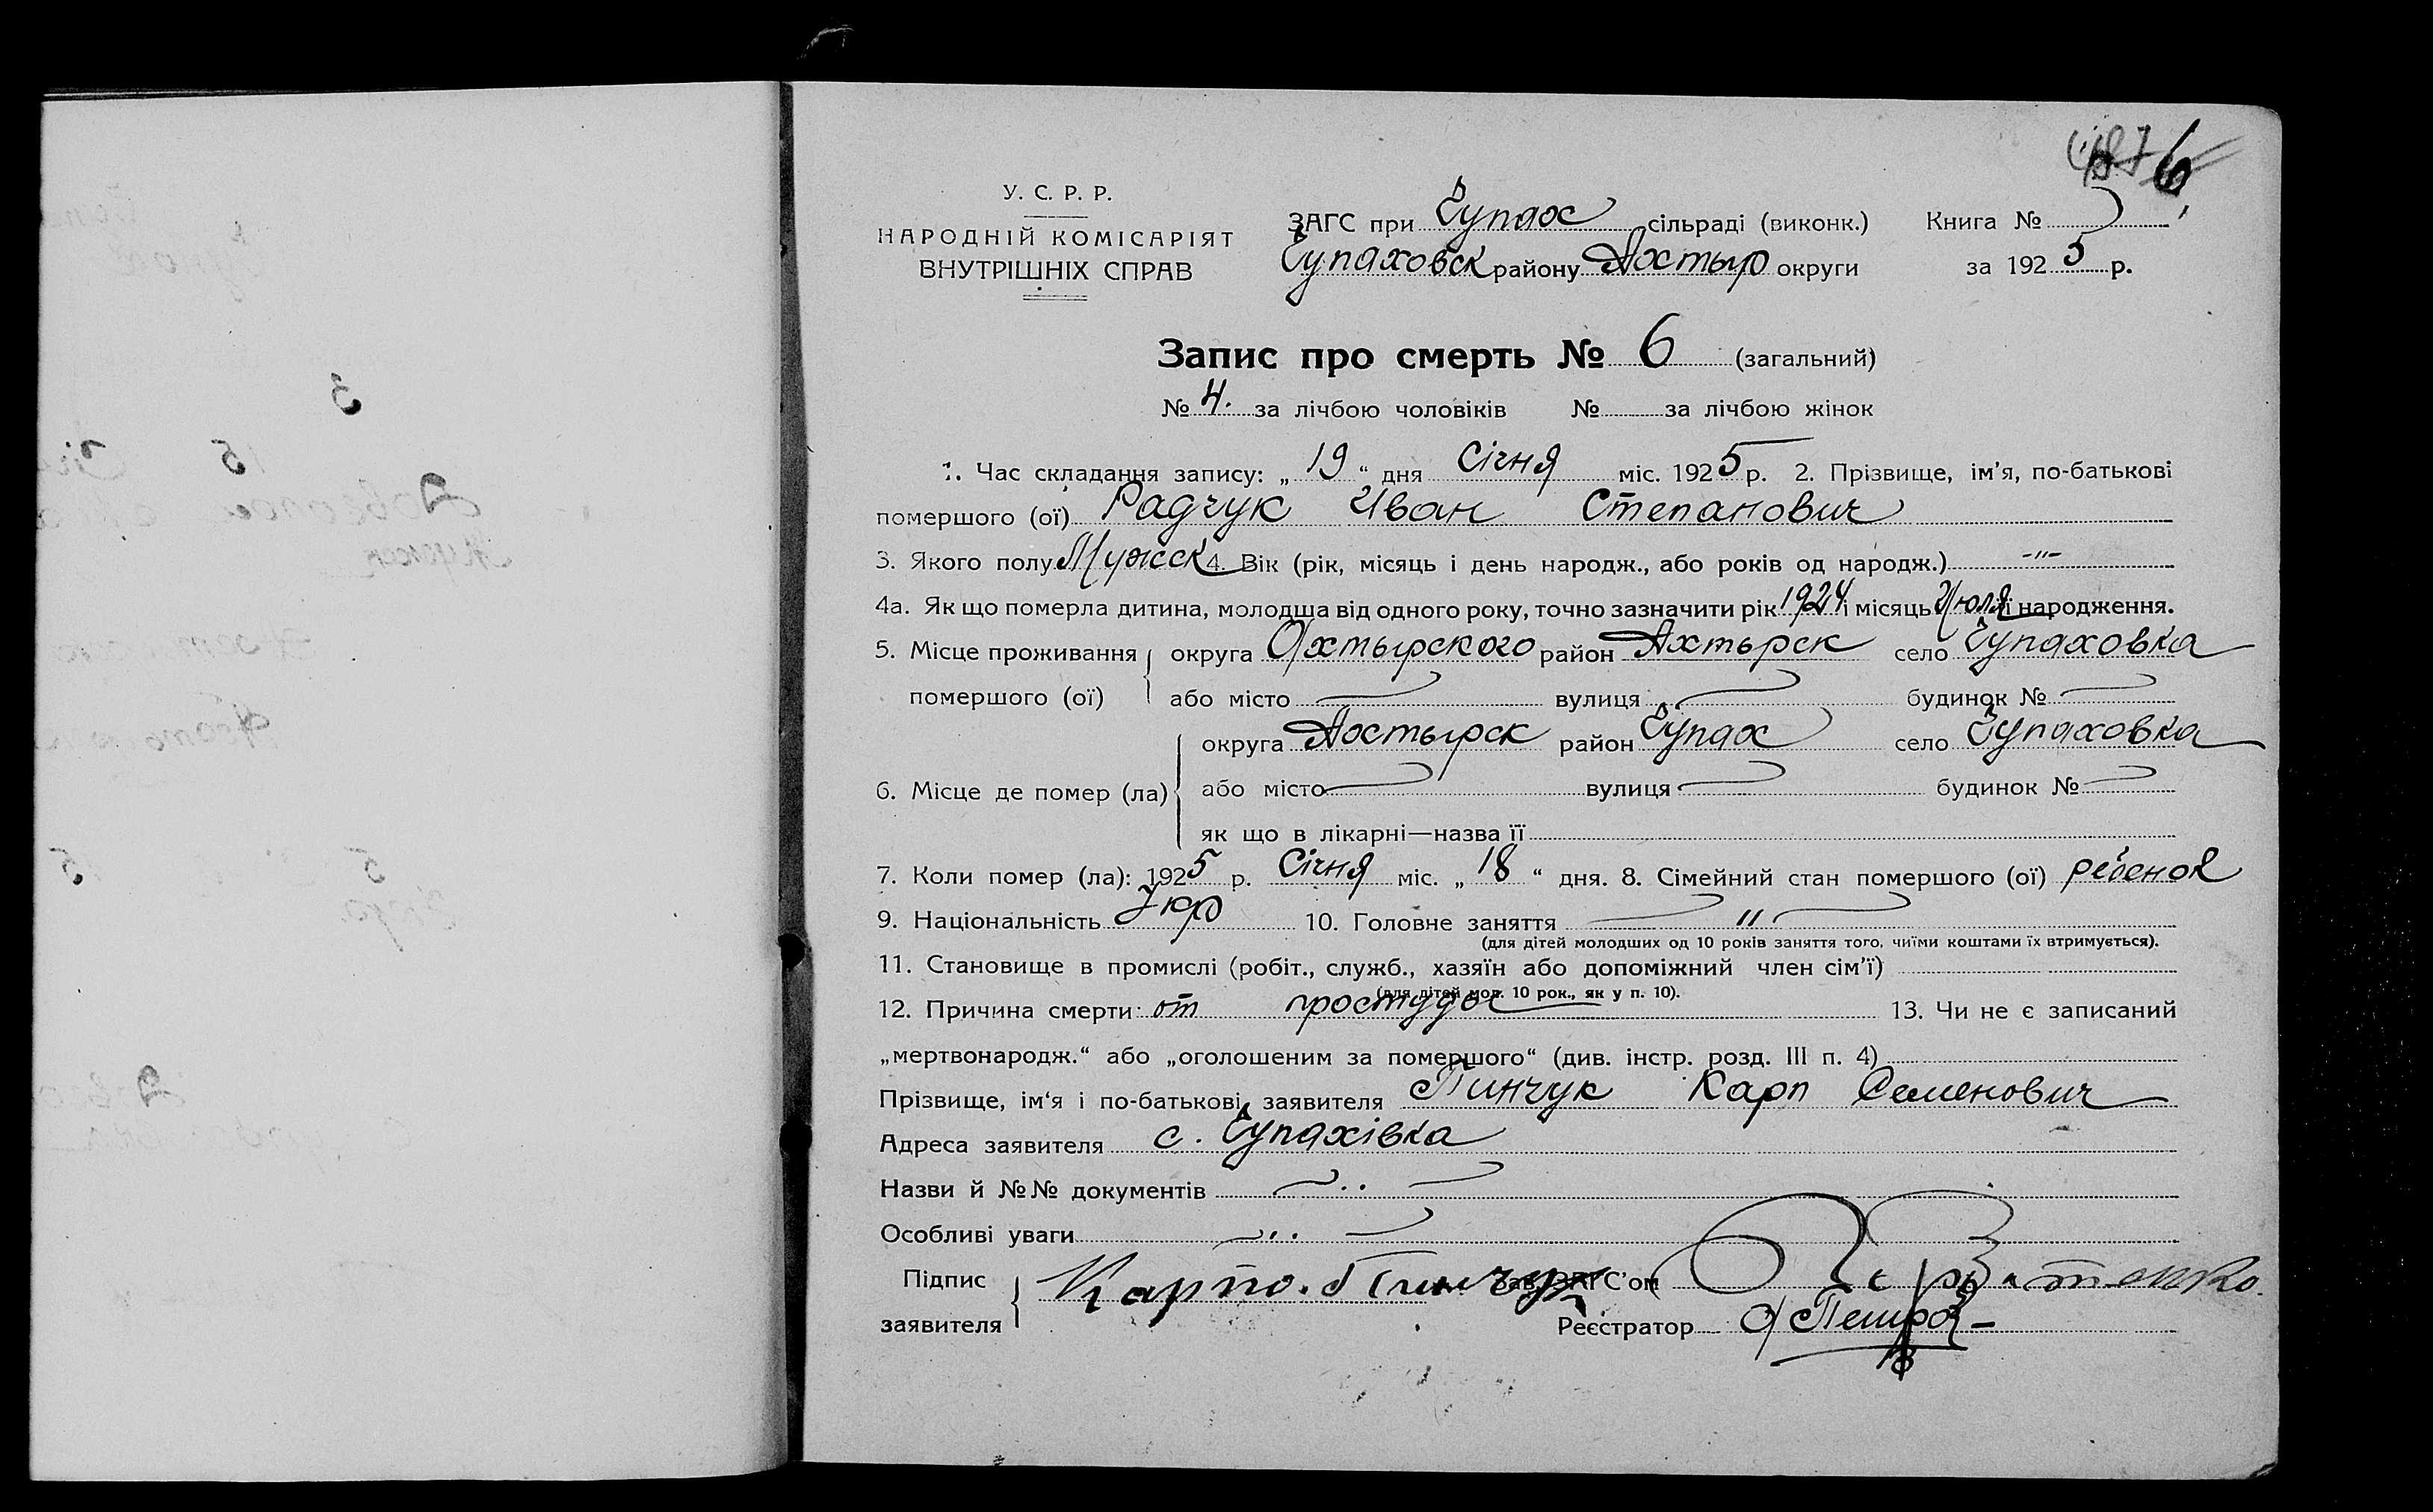 6
У. С. Р. Р.
НАРОДНІЙ КОМІСАРІЯТ
ВНУТРІШНІХ СПРАВ
ЗАГС при Чупах сільраді (виконк.) Книга №
Чупаховск району Ахтыр округи за 1925 р.
Запис про смерть № 6 (загальний)
№ 4. за лічбою чоловіків № за лічбою жінок
1. Час складання запису: „19“ дня Січня міс. 1925 р. 2. Прізвище, ім'я, по-батькові
помершого (ої) Радчук Иван Степанович
3. Якого полу Мужск 4. Вік (рік, місяць і день народж., або років од народж.) -"-
4а. Як що померла дитина, молодша від одного року, точно зазначити рік 1924 і місяць Июля її народження.
5. Місце проживання округа Ахтырского район Ахтырск село Чупаховка
помершого (ої) або місто вулиця будинок №
округа Ахтырск район Чупах село Чупаховка
6. Місце де помер (ла) або місто вулиця будинок №
як що в лікарні—назва її
7. Коли помер (ла): 1925 р. Січня міс. „18“ дня. 8. Сімейний стан помершого (ої) ребенок
9. Національність Укр 10. Головне заняття "
(для дітей молодших од 10 років заняття того, чиїми коштами їх втримується).
11. Становище в промислі (робіт., служб., хазяїн або допоміжний член сім'ї)
(для дітей мол. 10 рок., як у п. 10).
12. Причина смерти: от простуды 13. Чи не є записаний
„мертвонародж.“ або „оголошеним за помершого“ (див. інстр. розд. III п. 4)
Прізвище, ім'я і по-батькові заявителя Пинчук Карп Семенович
Адреса заявителя с. Чупахівка
Назви й №№ документів
Особливі уваги
Підпис Карпо. Пинчук Зав. ЗАГС'ом
заявителя Реєстратор